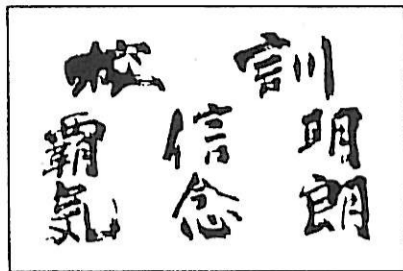 訓
明朗
信念
覇気